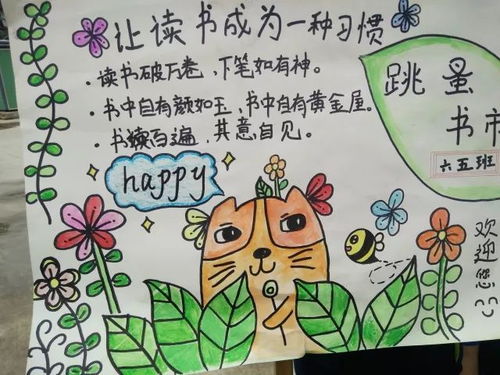 让读书成为一种习惯
·读书破万卷，下笔如有神。
·书中自有颜如玉，书中自有黄金屋。
·书读百遍，其意自见。
happy
跳蚤
书市
六五班
欢迎您